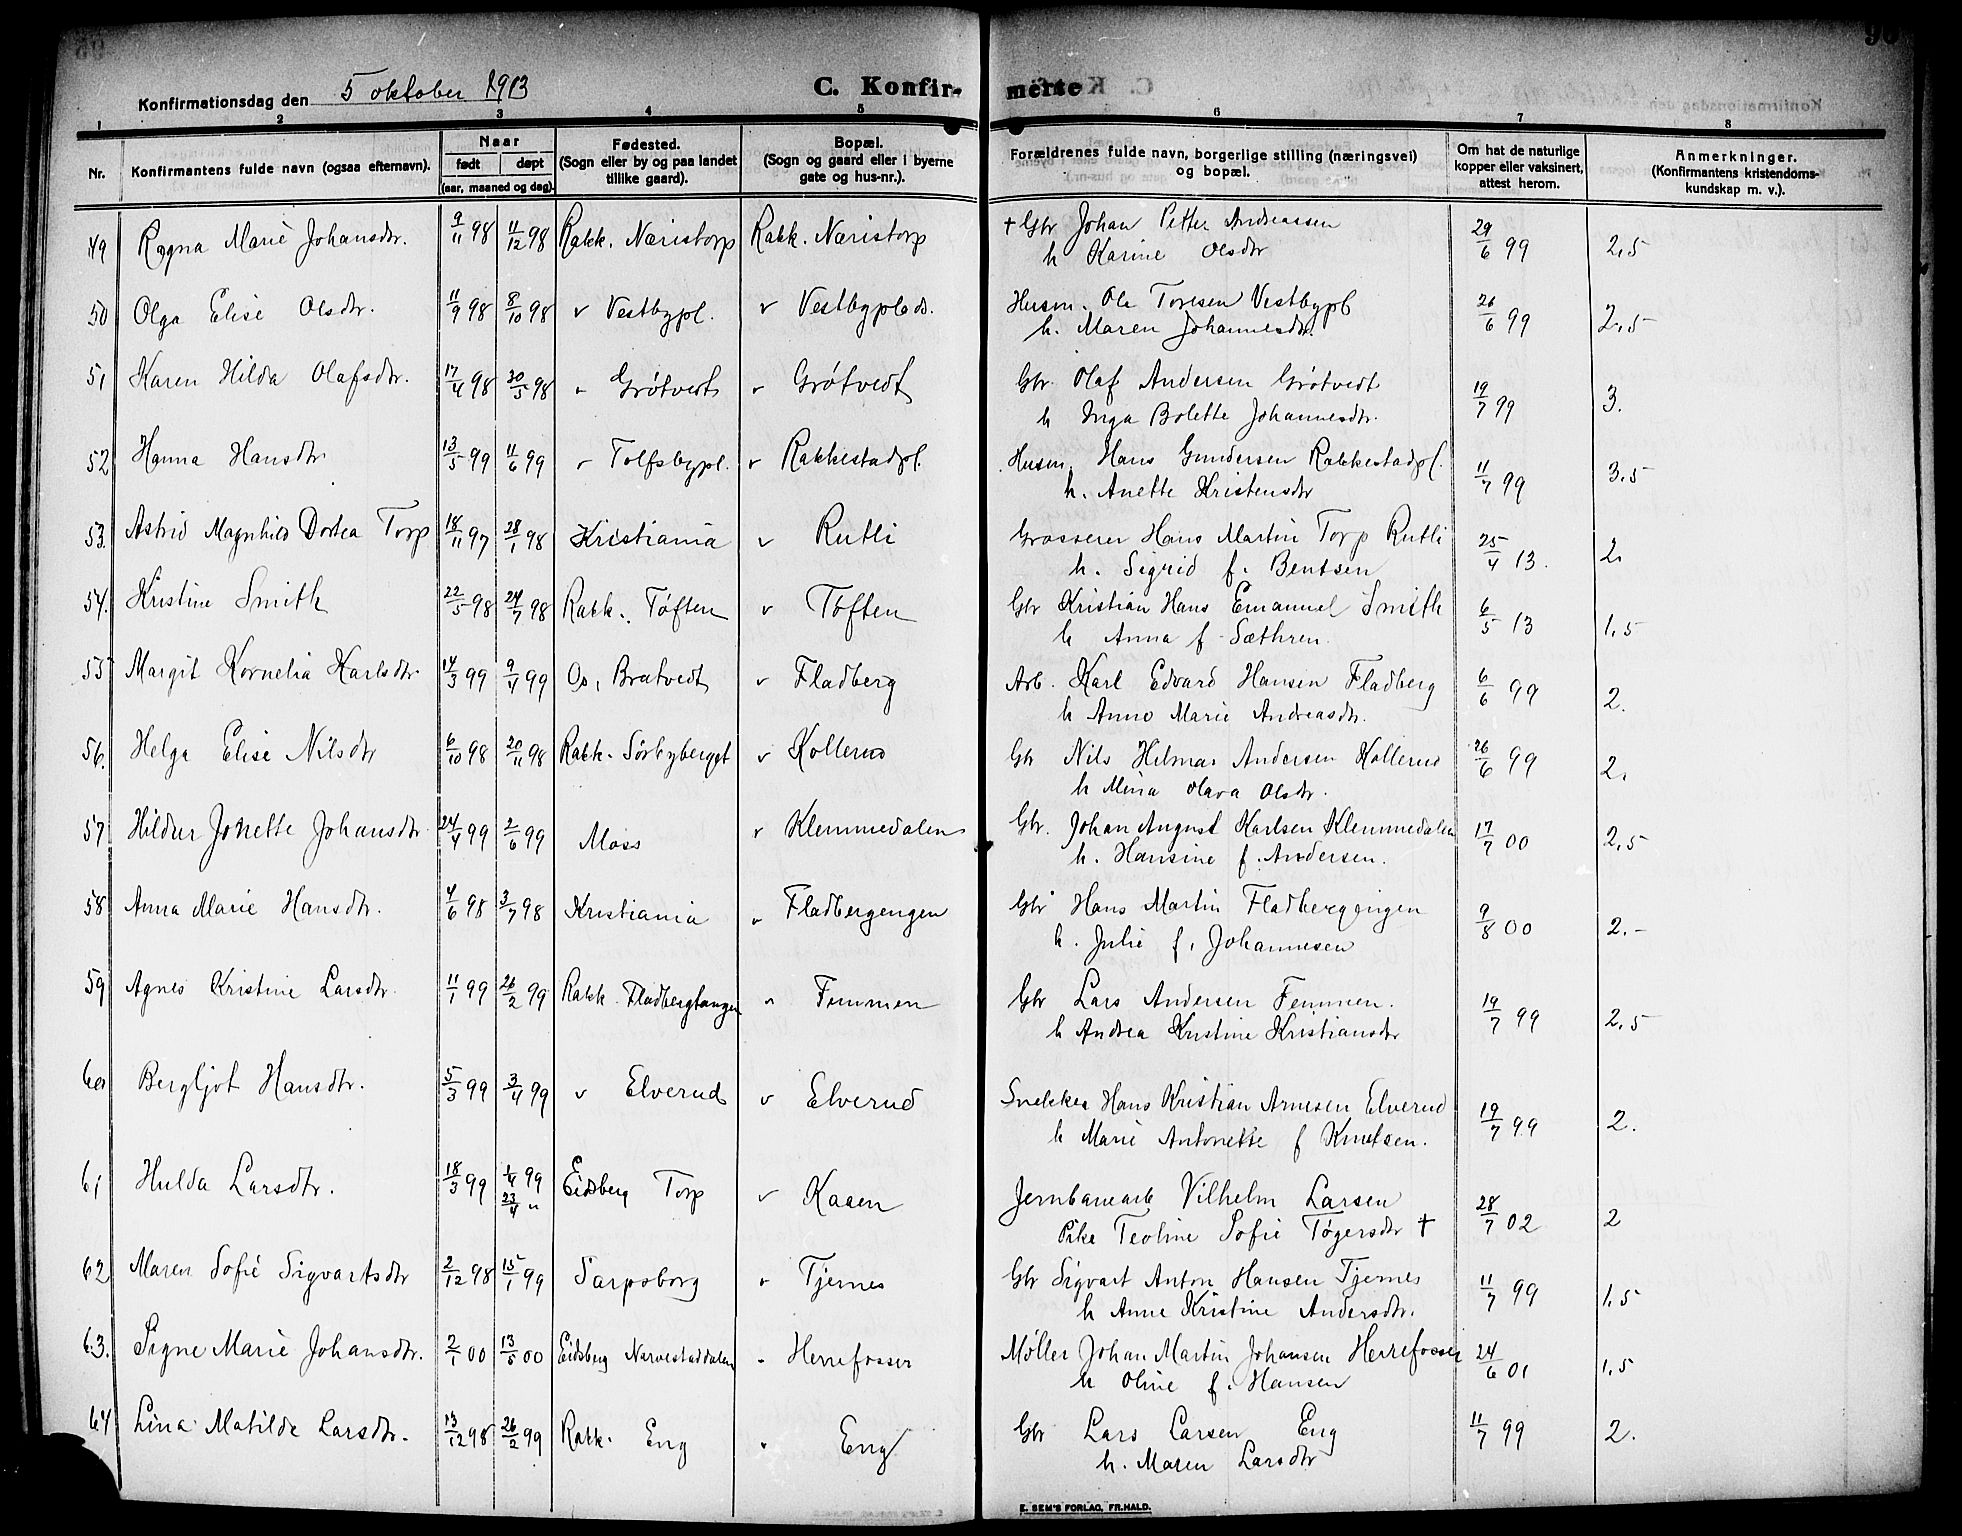 Konfirmationsdag den 5 oktober 1913
C. Konfir- merte
1 2 3 4 5 6 7 8
Nr.
Konfirmantens fulde navn (ogsaa efternavn).
Naar
født
døpt
(aar, maaned og dag).
Fødested.
(Sogn eller by og paa landet
tillike gaard).
Bopæl.
(Sogn og gaard eller i byerne
gate og hus-nr.).
Forældrenes fulde navn, borgerlige stilling (næringsvei)
og bopæl.
Om hat de naturlige
kopper eller vaksinert,
attest herom.
Anmerkninger.
(Konfirmantens kristendoms-
kundskap m. v.).
49 Ragna Marie Johansdtr. 9/11 98 11/12 98 Rakk. Næristorp Rakk. Næristorp † Gbr Johan Petter Andreassen 29/6 99 2,5
h Karine Olsdtr
50 Olga Elise Olsdtr. 11/9 98 8/10 98 " Vestbypl. " Vestbyplads. Husm. Ole Toresen Vestbypl 26/6 99 2,5
h. Maren Johannesdtr.
51 Karen Hilda Olafsdtr. 17/4 98 30/5 98 " Grøtvedt " Grøtvedt Gbr. Olaf Andersen Grøtvedt 19/7 99 3.
h Inga Bolette Johannesdtr.
52 Hanna Hansdtr 13/5 99 11/6 99 " Tolfsbypl. " Rakkestadpl. Husm. Hans Gundersen Rakkestadpl. 11/7 99 3,5
h. Anette Kristensdtr
53. Astrid Magnhild Dortea Torp 18/11 97 28/1 98 Kristiania " Rutli Grosserer Hans Martin Torp Rutli 25/4 13. 2.
h. Sigrid f. Bentsen
54. Kristine Smith 22/5 98 24/7 98 Rakk. Tøften " Tøften Gbr Kristian Hans Emanuel Smith 6/5 13 1,5
h Anna f. Sæthren.
55 Margit Kornelia Karlsdtr. 14/3 99 9/4 99 Os, Bratvedt " Fladberg Arb. Karl Edvard Hansen Fladberg 6/6 99 2.
h Anne Marie Andreasdtr.
56. Helga Elise Nilsdtr 6/10 98 20/11 98 Rakk. Sørbyberget " Kollerud Gbr Nils Hilmar Andersen Kollerud 26/6 99 2.
h Mina Olava Olsdtr.
57 Hildur Jonette Johansdtr. 24/4 99 2/6 99 Moss " Klemmedalen Gbr. Johan August Karlsen Klemmedalen 17/7 00 2,5
h. Hansine f. Andersen.
58 Anna Marie Hansdtr. 4/6 98 3/7 98 Kristiania " Fladbergengen Gbr Hans Martin Fladbergengen 9/8 00 2.-
h. Julie f. Johannesen
59 Agnes Kristine Larsdtr. 11/1 99 26/2 99 Rakk. Fladbergtangen " Femmen Gbr Lars Andersen Femmen. 19/7 99 2,5
h Andrea Kristine Kristiansdtr
60 Bergljot Hansdtr. 5/3 99 3/4 99 " Elverud " Elverud Snekker Hans Kristian Arnesen Elverud 19/7 99 2.
h Marie Antonette f Knutsen.
61 Hulda Larsdtr. 18/3 99 1/4 99 Eidsberg Torp " Kaaen Jernbanearb Vilhelm Larsen 28/7 02 2
23/4 " Pike Teoline Sofie Tøgersdtr †
62 Maren Sofie Sigvartsdtr 2/12 98 15/1 99 Sarpsborg " Tjernes Gbr Sigvart Anton Hansen Tjernes 11/7 99 1,5
h Anne Kristine Andersdtr.
63. Signe Marie Johansdtr. 2/1 00 13/5 00 Eidsberg Narvestaddalen " Herrefosser Møller Johan Martin Johansen Herrefosser 24/6 01 1,5
h Oline f. Hansen
64 Lina Matilde Larsdtr. 13/12 98 26/2 99 Rakk. Eng " Eng Gbr Lars Larsen Eng 11/7 99 2.
h. Maren Larsdtr
E. SEM'S FORLAG, FR.HALD.